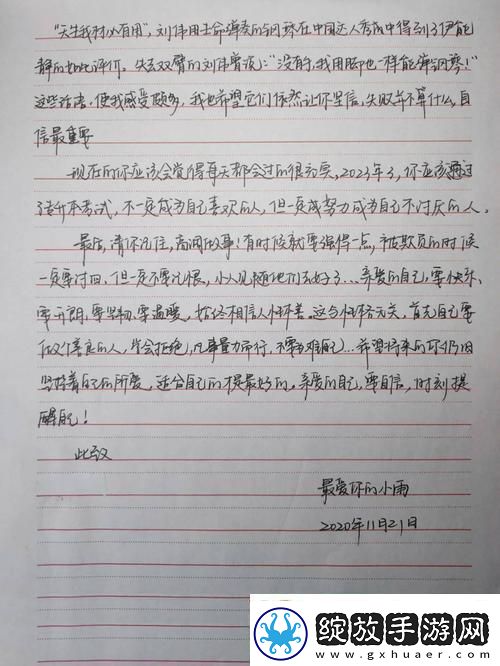 “天生我材必有用”，刘伟用生命弹奏的钢琴在中国达人秀成中得到了伊能
静的如此评价，失去双臂的刘伟曾说：“没有手，我用脚也一样能弹钢琴！”
这些话语，使我感受颇多，我也希望它们依然让你坚信，失败并不算什么，自
信最重要
现在的你应该会觉得每天都会过的很充实，2023年了，你应该通过
专升本考试，不一定成为自己喜欢的人，但一定成努力成为自己不讨厌的人。
最后，请你记住，高调做事！有时候就要强得一点，被欺负的时候
一定要讨回，但一定不要记恨，小人见随他们去好了…亲爱的自己，要快乐、
要开朗、要坚韧、要温暖，始终相信人性本善。这与性格无关，首先自己要
做个善良的人，学会拒绝，凡事量力而行，不要为难自己…希望将来的你仍旧
坚持着自己的所爱，适合自己的便是最好的。亲爱的自己，要自信，时刻提
醒自己！
此致
最爱你的小雨
2020年11月21日
绽放手游网
www.gxhuaer.com